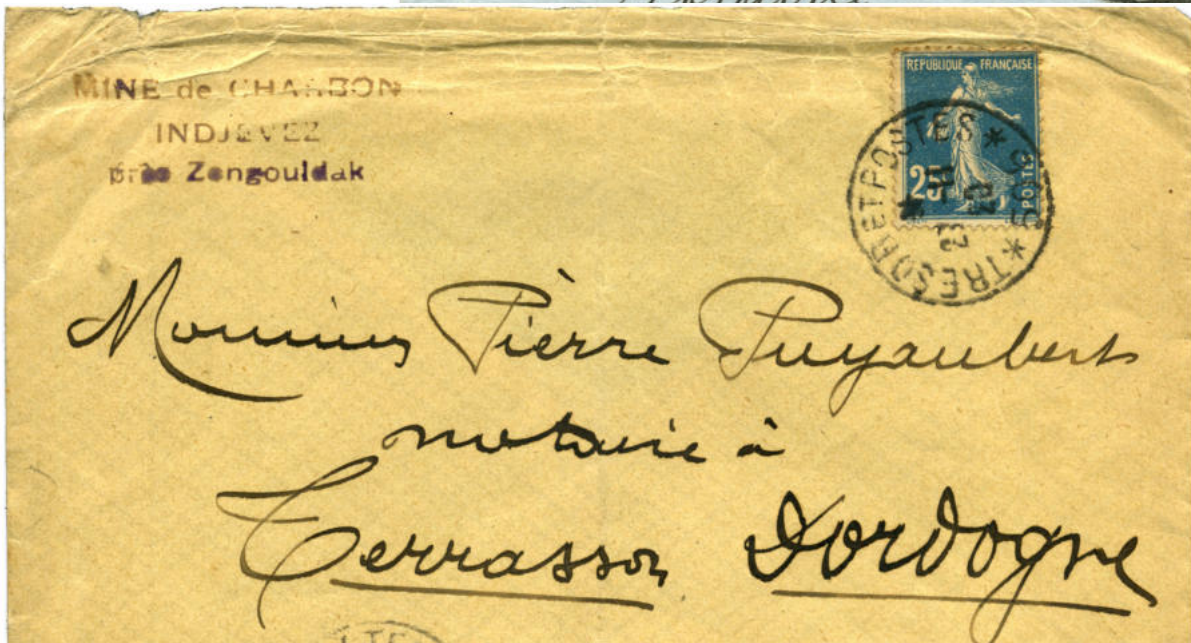 MINE de CHARBON
INDJEVEZ
près Zongouldak
REPUBLIQUE FRANÇAISE
25
POSTES
TRESOR ET POSTES * 506 *
Monsieur Pierre Puyaubert
notaire à
Terrasson Dordogne